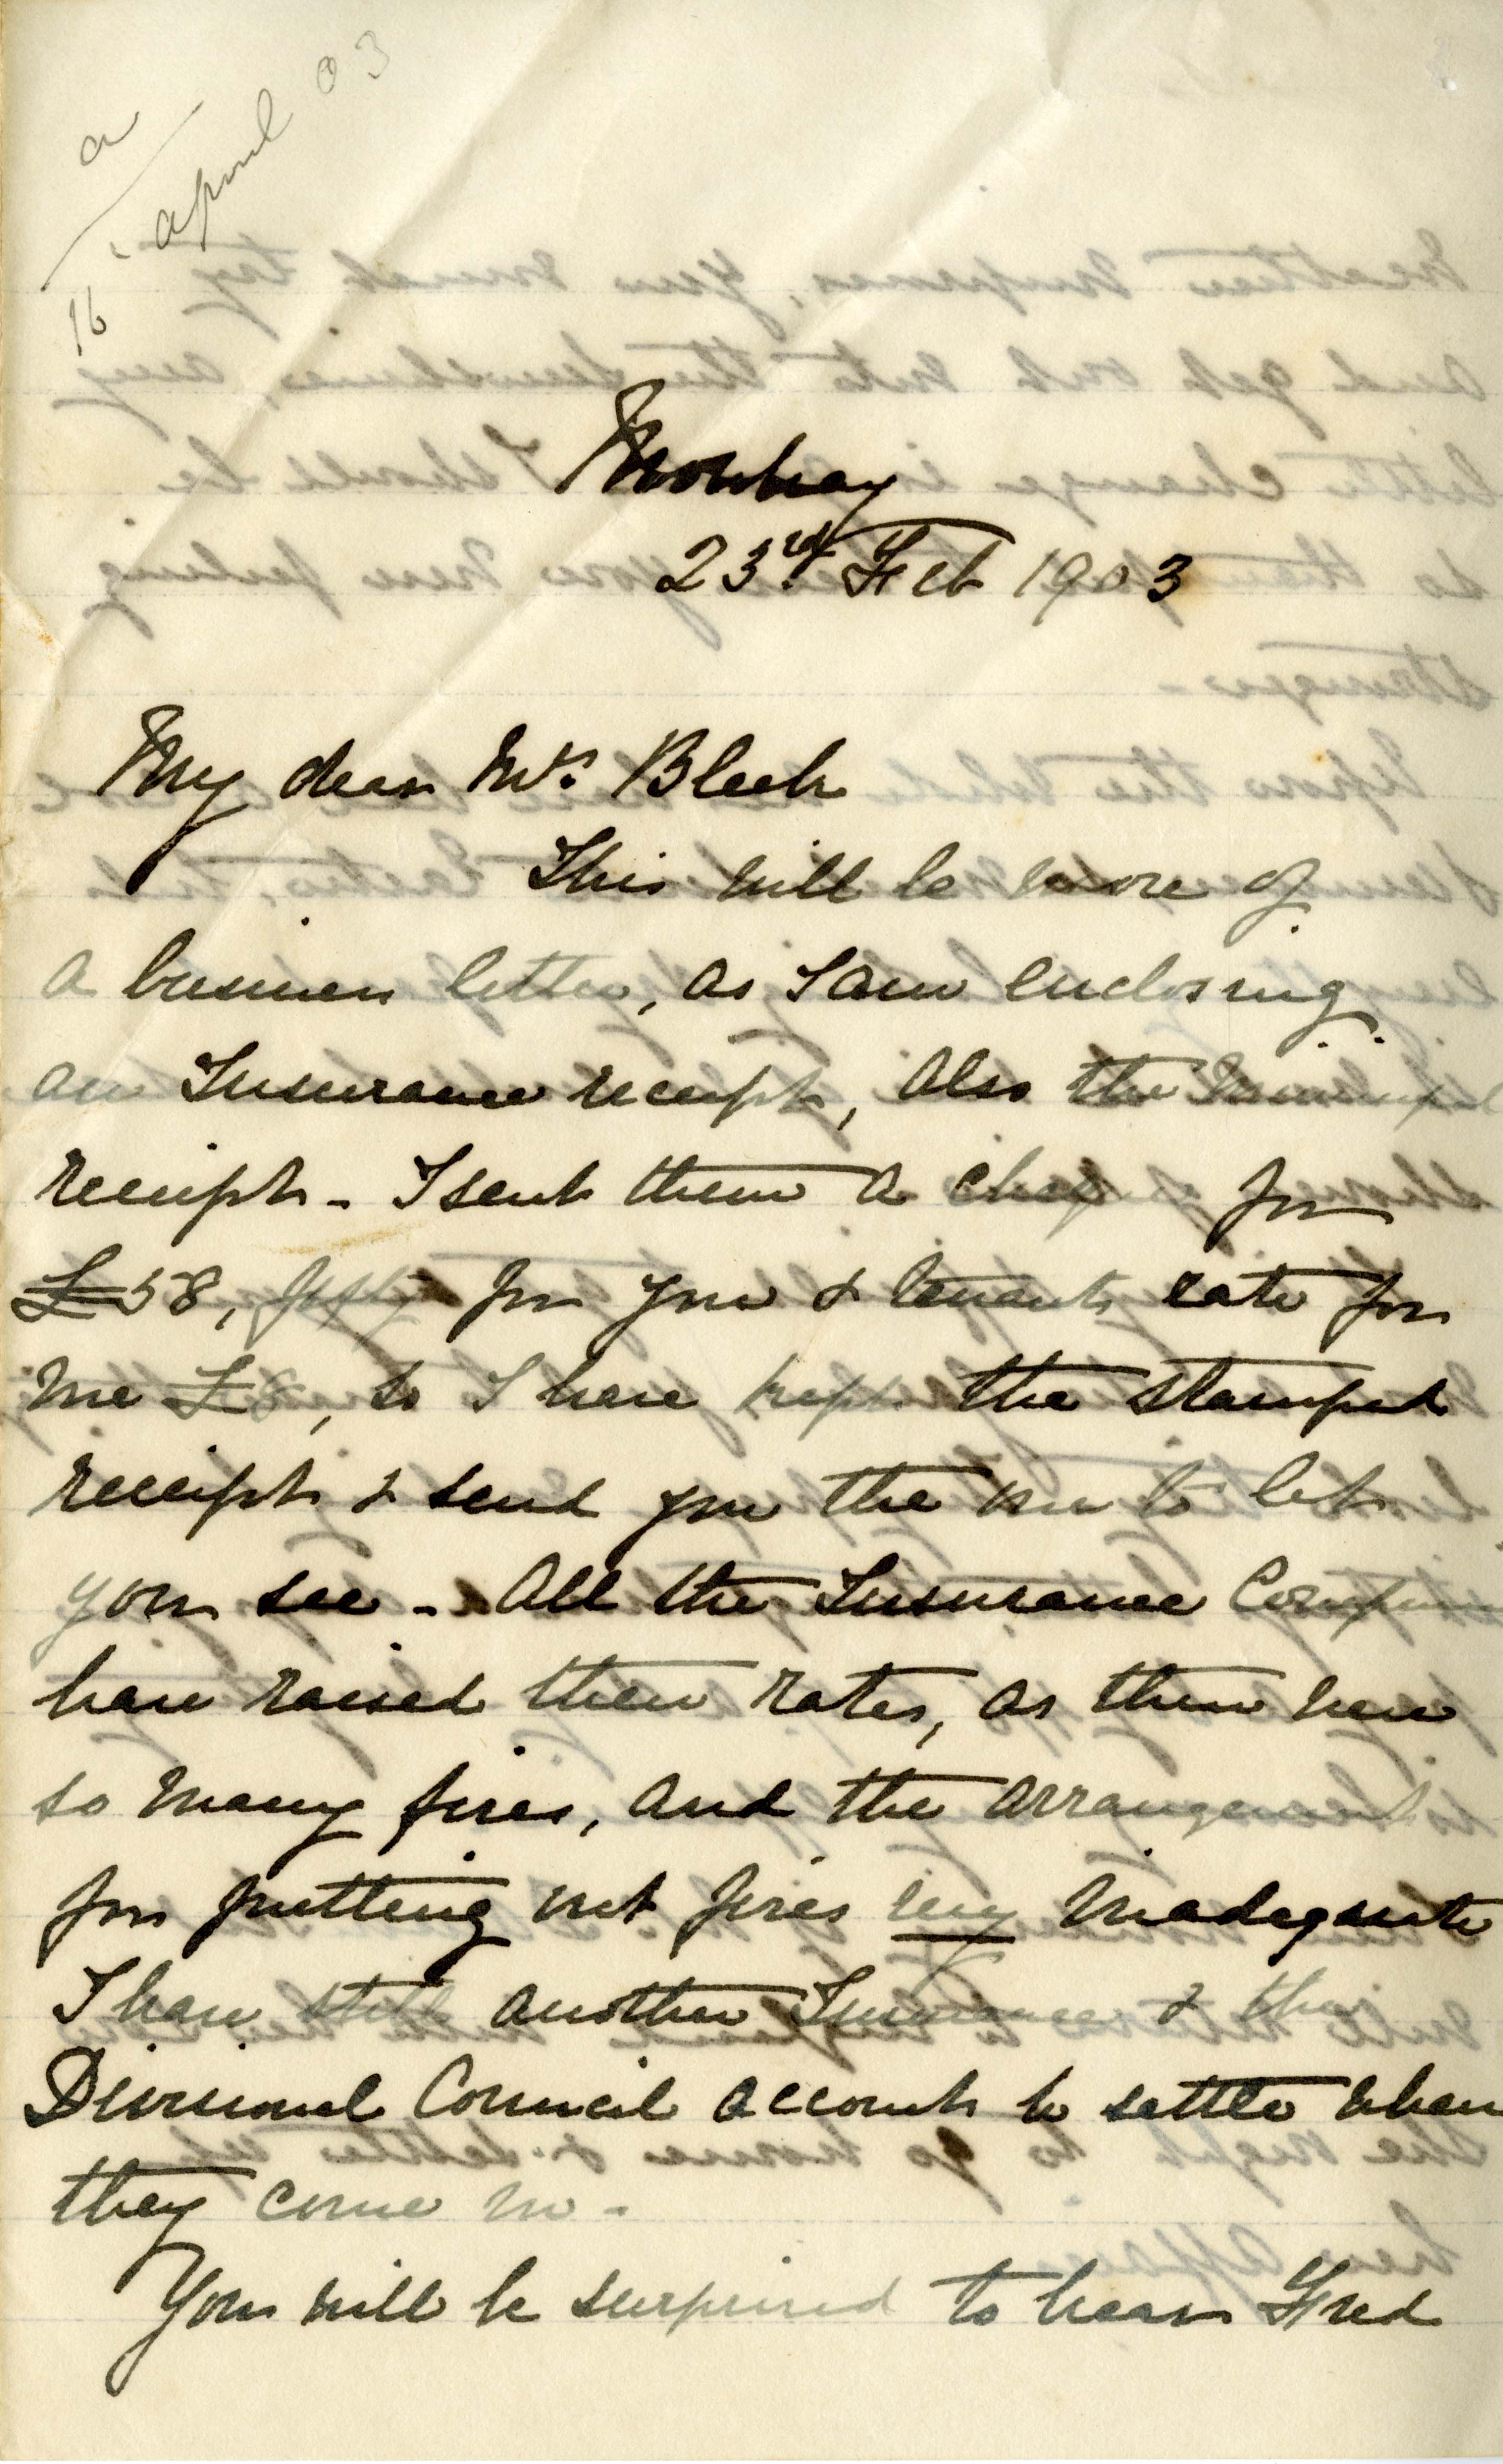 a
16 April 03
Mowbray
23rd Feb 1903
My dear Mrs Bleek
This will be more of
a business letter, as I am enclosing
an Insurance receipt, also the Municipal
receipt - I sent them a cheq for
£58, fifty for you & tenants rate for
me £8, so I have kept the stamped
receipt & send you the one to let
you see - All the Insurance Companies
have raised their rates, as there were
so many fires, and the arrangement
for putting out fires very inadequate
I have still another Insurance & the
Divisional Council account to settle when
they come in -
You will be surprised to hear Fred